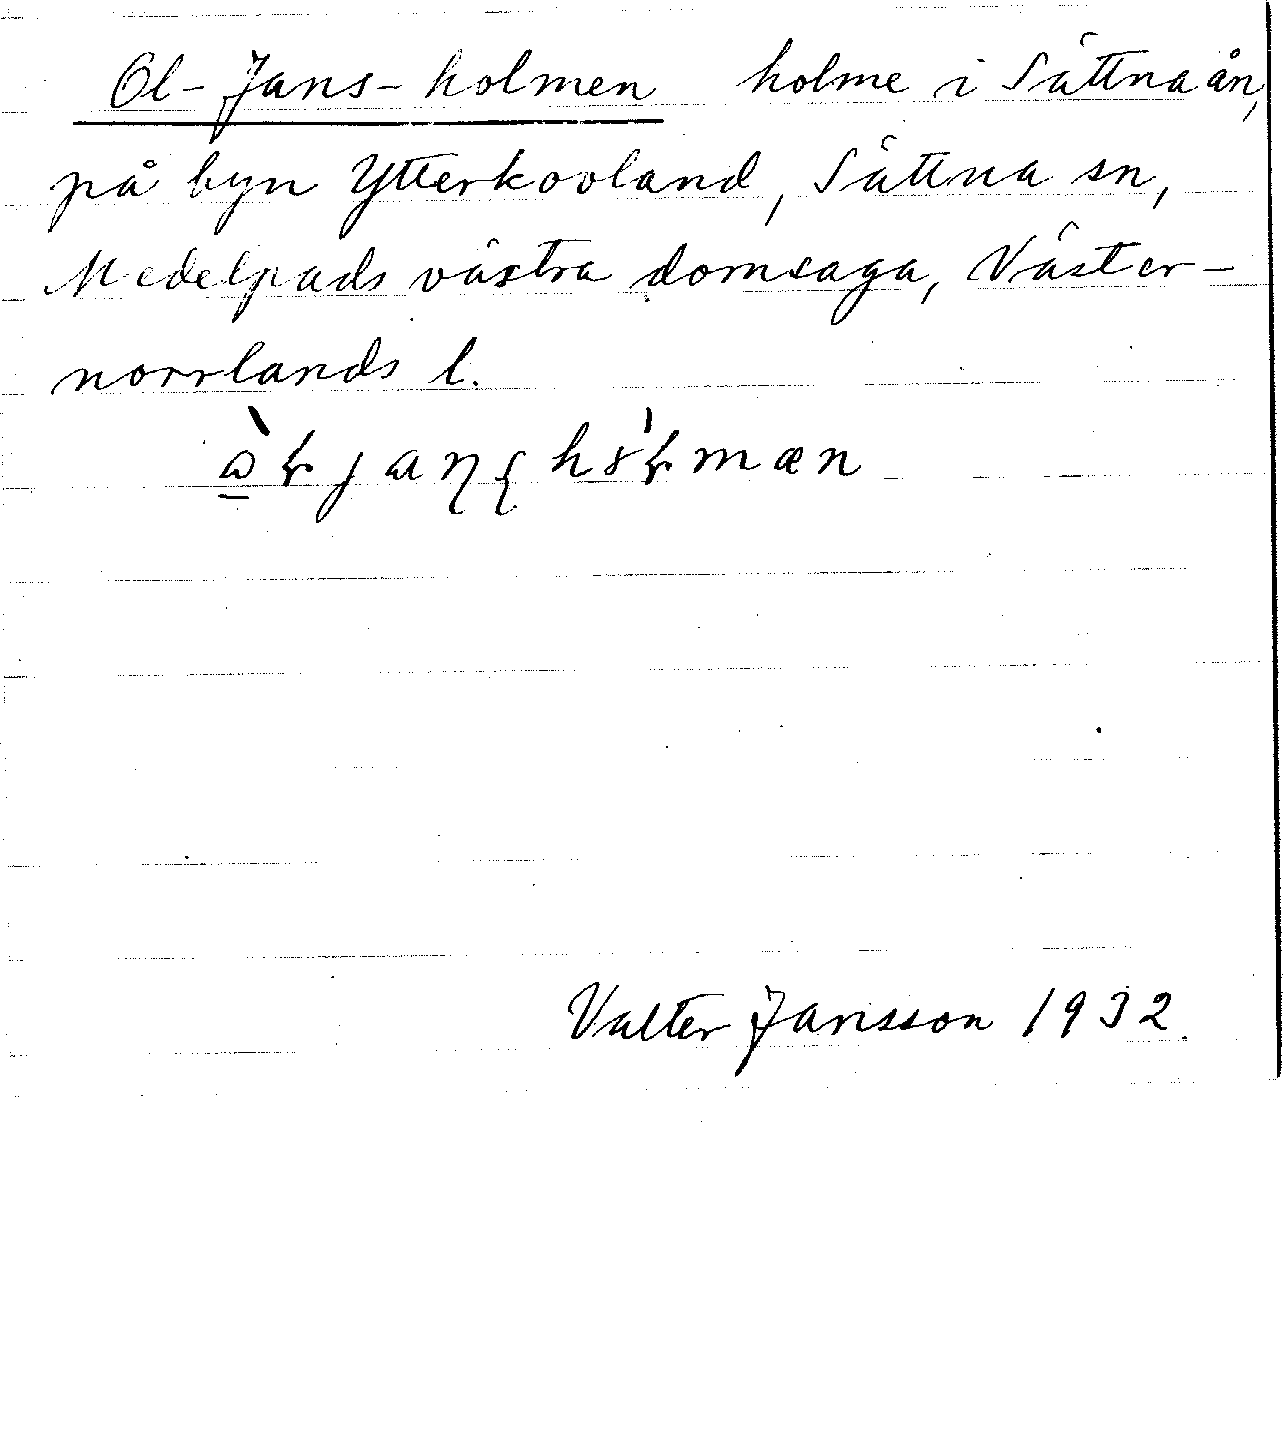 Ol-Jans-holmen holme i Sättnaån,
på byn Ytterkovland, Sättna sn,
Medelpads västra domsaga, Väster-
norrlands l.
Valter Jansson 1932.